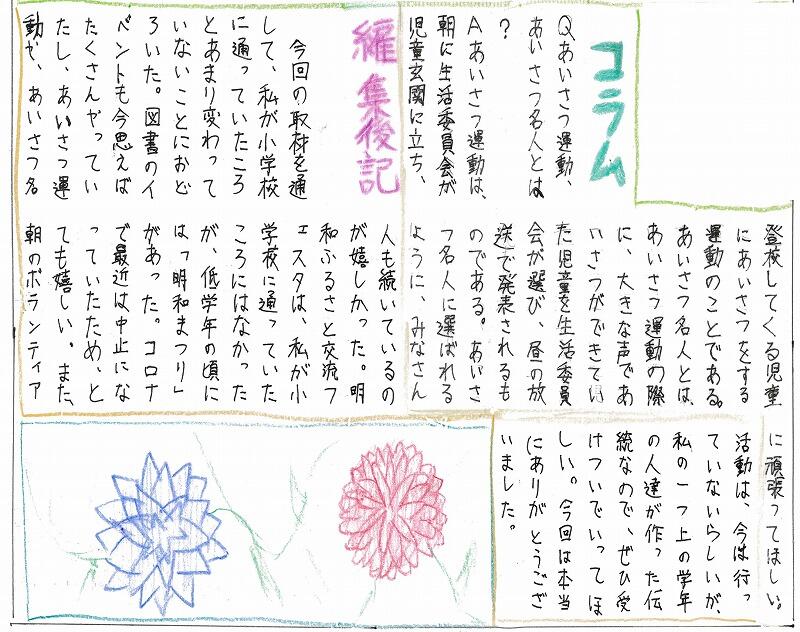 コラム
Qあいさつ運動、
あいさつ名人とは
？
Aあいさつ運動は、
朝に生活委員会が
児童玄関に立ち、
登校してくる児童
にあいさつをする
運動のことである。
あいさつ名人とは、
あいさつ運動の際
に、大きな声であ
いさつができてい
た児童を生活委員
会が選び、昼の放
送で発表されるも
のである。あいさ
つ名人に選ばれる
ように、みなさん
に頑張ってほしい。
編集後記
今回の取材を通
して、私が小学校
に通っていたころ
とあまり変わって
いないことにおど
ろいた。図書のイ
ベントも今思えば
たくさんやってい
たし、あいさつ運
動や、あいさつ名
人も続いているの
が嬉しかった。明
和ふるさと交流フ
ェスタは、私が小
学校に通っていた
ころにはなかった
が、低学年の頃に
は「明和まつり」
があった。コロナ
で最近は中止にな
っていたため、と
ても嬉しい。また、
朝のボランティア
活動は、今は行っ
ていないらしいが、
私の一つ上の学年
の人達が作った伝
統なので、ぜひ受
けついでいってほ
しい。今回は本当
にありがとうござ
いました。